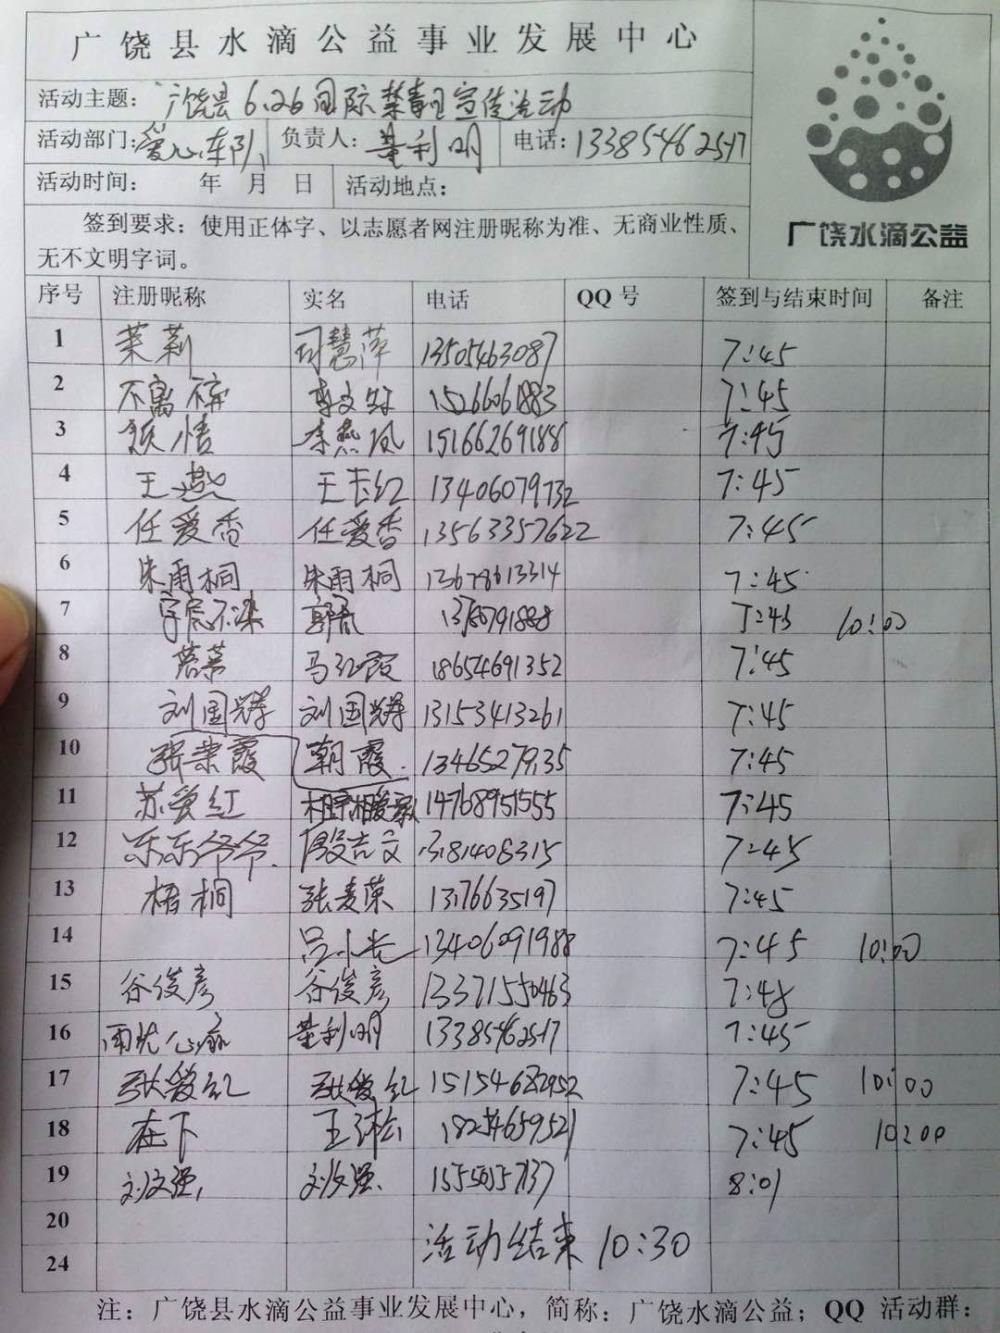 广饶县水滴公益事业发展中心
活动主题：广饶县6.26国际禁毒日宣传活动
活动部门：爱心车队 负责人：董利明 电话：13385462517
活动时间： 年 月 日 活动地点：
签到要求：使用正体字、以志愿者网注册昵称为准、无商业性质、
无不文明字词。
广饶水滴公益
序号 注册昵称 实名 电话 QQ 号 签到与结束时间 备注
1 茉莉 司慧萍 13505463087 7:45
2 不离不弃 李文 15266061883 7:45
3 情 李燕凤 15166269188 7:45
4 王燕 王长红 13406079732 7:45
5 任爱香 任爱香 13563357622 7:45
6 朱雨桐 朱雨桐 13678613314 7:45
7 7:45 10:00
8 马红霞 18654691352 7:45
9 刘国辉 刘国辉 13153413261 7:45
10 张荣霞 朝霞 13465279135 7:45
11 苏爱红 14768951555 7:45
12 乐乐爷爷 殷吉文 13181408315 7:45
13 梧桐 张麦荣 13176635197 7:45
14 吕小长 13406091988 7:45 10:00
15 谷俊彦 谷俊彦 13371550463 7:48
16 雨 董利明 13385462517 7:45
17 张爱红 张爱红 15154682952 7:45 10:00
18 在下 王 18254659521 7:45 10:00
19 刘文强 刘文强 15550157137 8:01
20 活动结束 10:30
24
注：广饶县水滴公益事业发展中心，简称：广饶水滴公益；QQ 活动群：